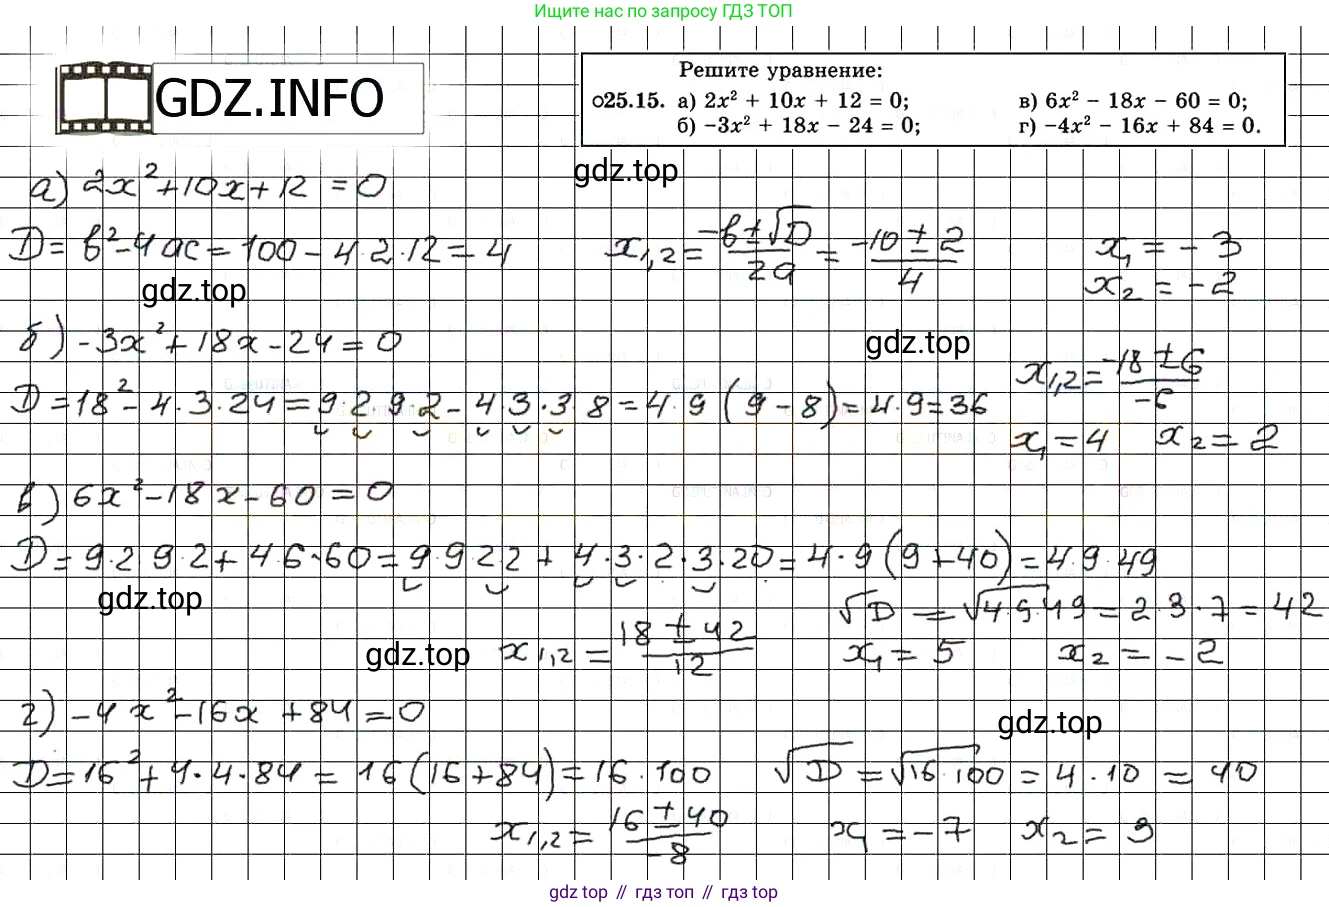 Ищите нас по запросу ГДЗ ТОП
GDZ.INFO
Решите уравнение:
о25.15. а) 2x² + 10x + 12 = 0; в) 6x² − 18x − 60 = 0;
б) −3x² + 18x − 24 = 0; г) −4x² − 16x + 84 = 0.
gdz.top
а) 2x² + 10x + 12 = 0
D = b² − 4ac = 100 − 4·2·12 = 4 x₁,₂ = (−b ± √D)/2a = (−10 ± 2)/4 x₁ = −3
x₂ = −2
gdz.top
б) −3x² + 18x − 24 = 0
gdz.top
x₁,₂ = (−18 ± 6)/−6
D = 18² − 4·3·24 = 9·2·9·2 − 4·3·3·8 = 4·9(9 − 8) = 4·9 = 36
x₁ = 4 x₂ = 2
в) 6x² − 18x − 60 = 0
D = 9·2·9·2 + 4·6·60 = 9·9·2·2 + 4·3·2·3·20 = 4·9(9 + 40) = 4·9·49
gdz.top
√D = √4·9·49 = 2·3·7 = 42
gdz.top
x₁,₂ = (18 ± 42)/12 x₁ = 5 x₂ = −2
г) −4x² − 16x + 84 = 0
gdz.top
D = 16² + 4·4·84 = 16(16 + 84) = 16·100 √D = √16·100 = 4·10 = 40
x₁,₂ = (16 ± 40)/−8 x₁ = −7 x₂ = 3
gdz top // гдз топ // гдз top